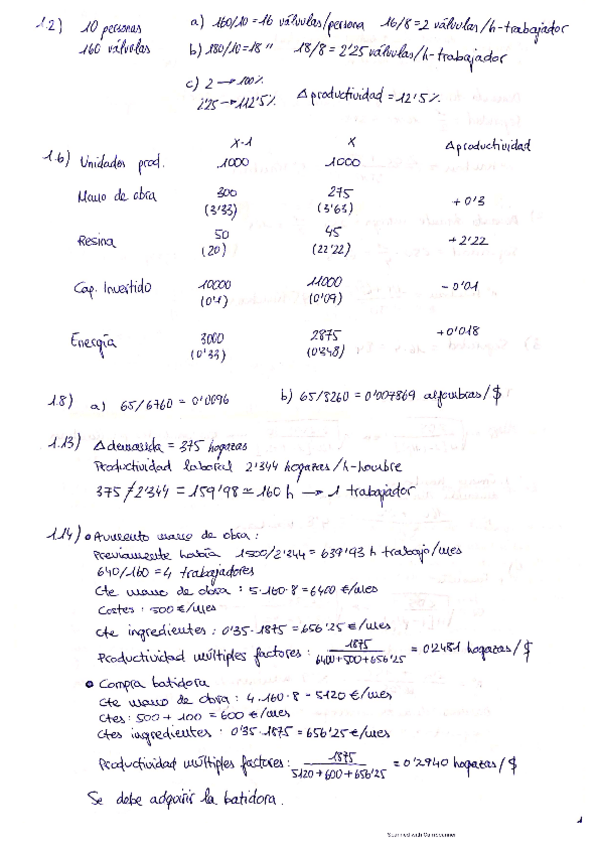 1.2) 10 personas a) 160/10=16 válvulas/persona 16/8=2 válvulas/h-trabajador
160 válvulas b) 180/10=18 " 18/8=2'25 válvulas/h-trabajador
c) 2 → 100%
2'25 → 112'5% Δ productividad = 12'5%
x-1 x Δ productividad
1.6) Unidades prod. 1000 1000
Mano de obra 300 275
(3'33) (3'63) +0'3
Resina 50 45 +2'22
(20) (22'22)
Cap. Invertido 10000 11000 -0'01
(0'1) (0'09)
Energía 3000 2875 +0'018
(0'33) (0'348)
1.8) a) 65/6760 = 0'0096 b) 65/8260 = 0'007869 alfombras/$
1.13) Δ demanda = 375 hogazas
Productividad laboral 2'344 hogazas/h-hombre
375/2'344 = 159'98 ≃ 160 h → 1 trabajador
1.14) • Aumento mano de obra:
Previamente había 1500/2'344 = 639'93 h trabajo/mes
640/160 = 4 trabajadores
Cte mano de obra: 5·160·8 = 6400 €/mes
Costes: 500 €/mes
Cte ingredientes: 0'35·1875 = 656'25 €/mes
Productividad múltiples factores: 1875/6400+500+656'25 = 0'2481 hogazas/$
• Compra batidora
Cte mano de obra: 4·160·8 = 5120 €/mes
Ctes: 500 + 100 = 600 €/mes
Ctes ingredientes: 0'35·1875 = 656'25 €/mes
Productividad múltiples factores: 1875/5120+600+656'25 = 0'2940 hogazas/$
Se debe adquirir la batidora.
1
Scanned with CamScanner